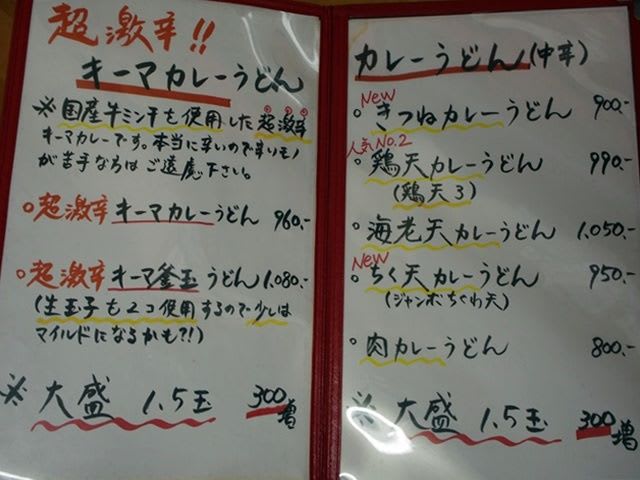 超激辛!!
キーマカレーうどん
※国産牛ミンチを使用した超激辛
キーマカレーです。本当に辛いので辛いモノ
が苦手な方はご遠慮下さい。
超激辛キーマカレーうどん 960.-
超激辛キーマ釜玉うどん 1,080.-
(生玉子も2コ使用するので少しは
マイルドになるかも?!)
※大盛 1.5玉 300増
カレーうどん(中辛)
New
きつねカレーうどん 900.-
人気No.2
鶏天カレーうどん 990.-
(鶏天3)
海老天カレーうどん 1,050.-
New
ちく天カレーうどん 950.-
(ジャンボちくわ天)
肉カレーうどん 800.-
※大盛 1.5玉 300増